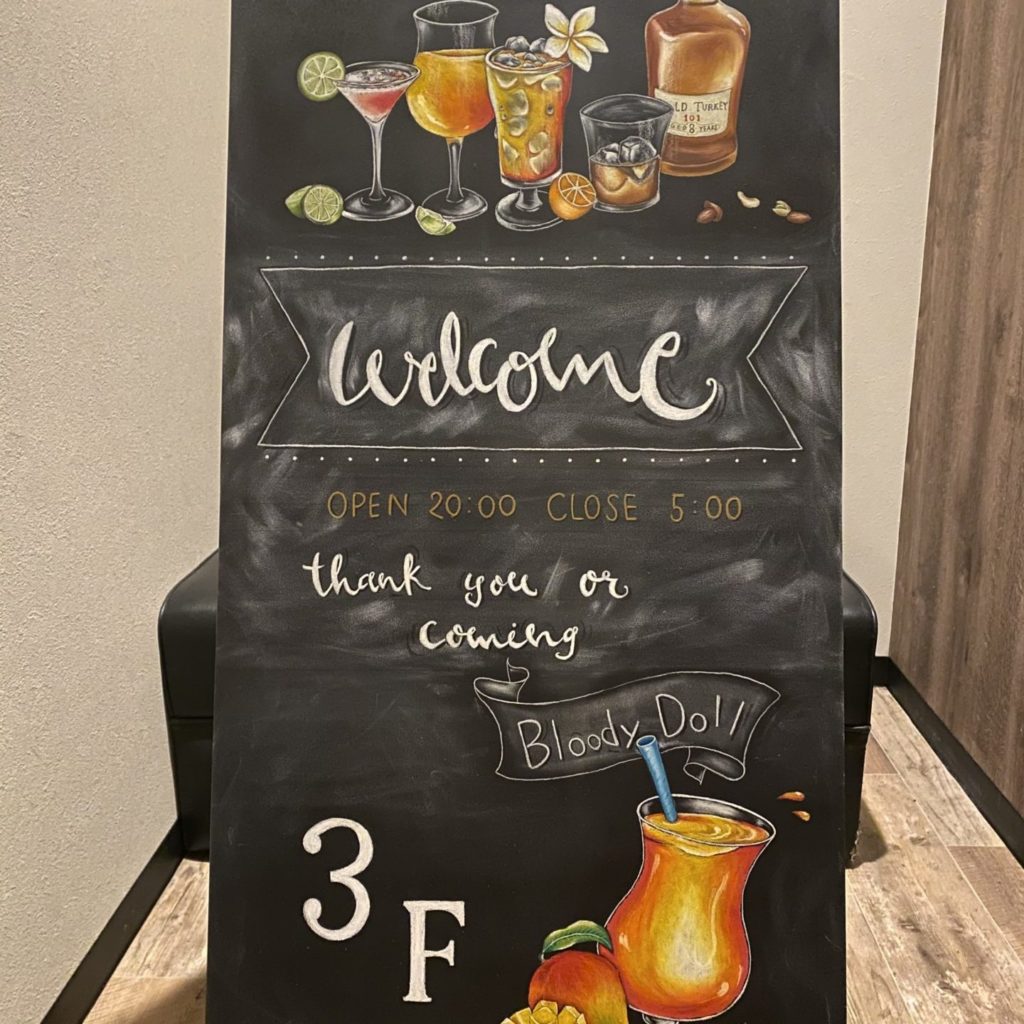 LD TURKEY
101
GED 8 YEARS
welcome
OPEN 20:00 CLOSE 5:00
thank you or
coming
Bloody Doll
3
F